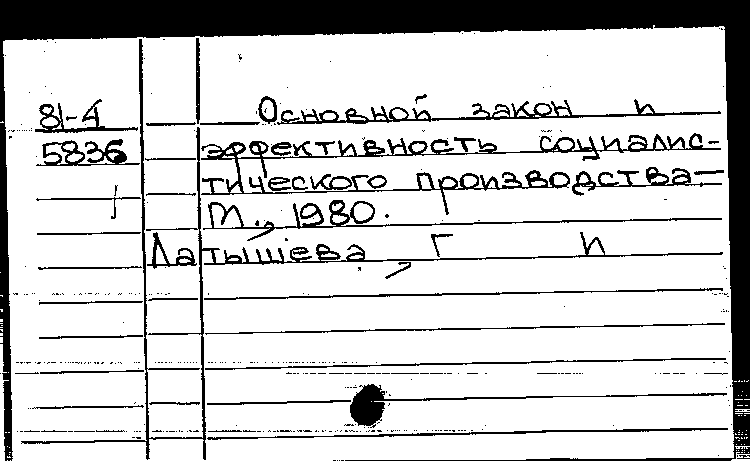 81-4 Основной закон и
5836 эффективность социалис-
тического производства—
М., 1980.
Латышева, Г И